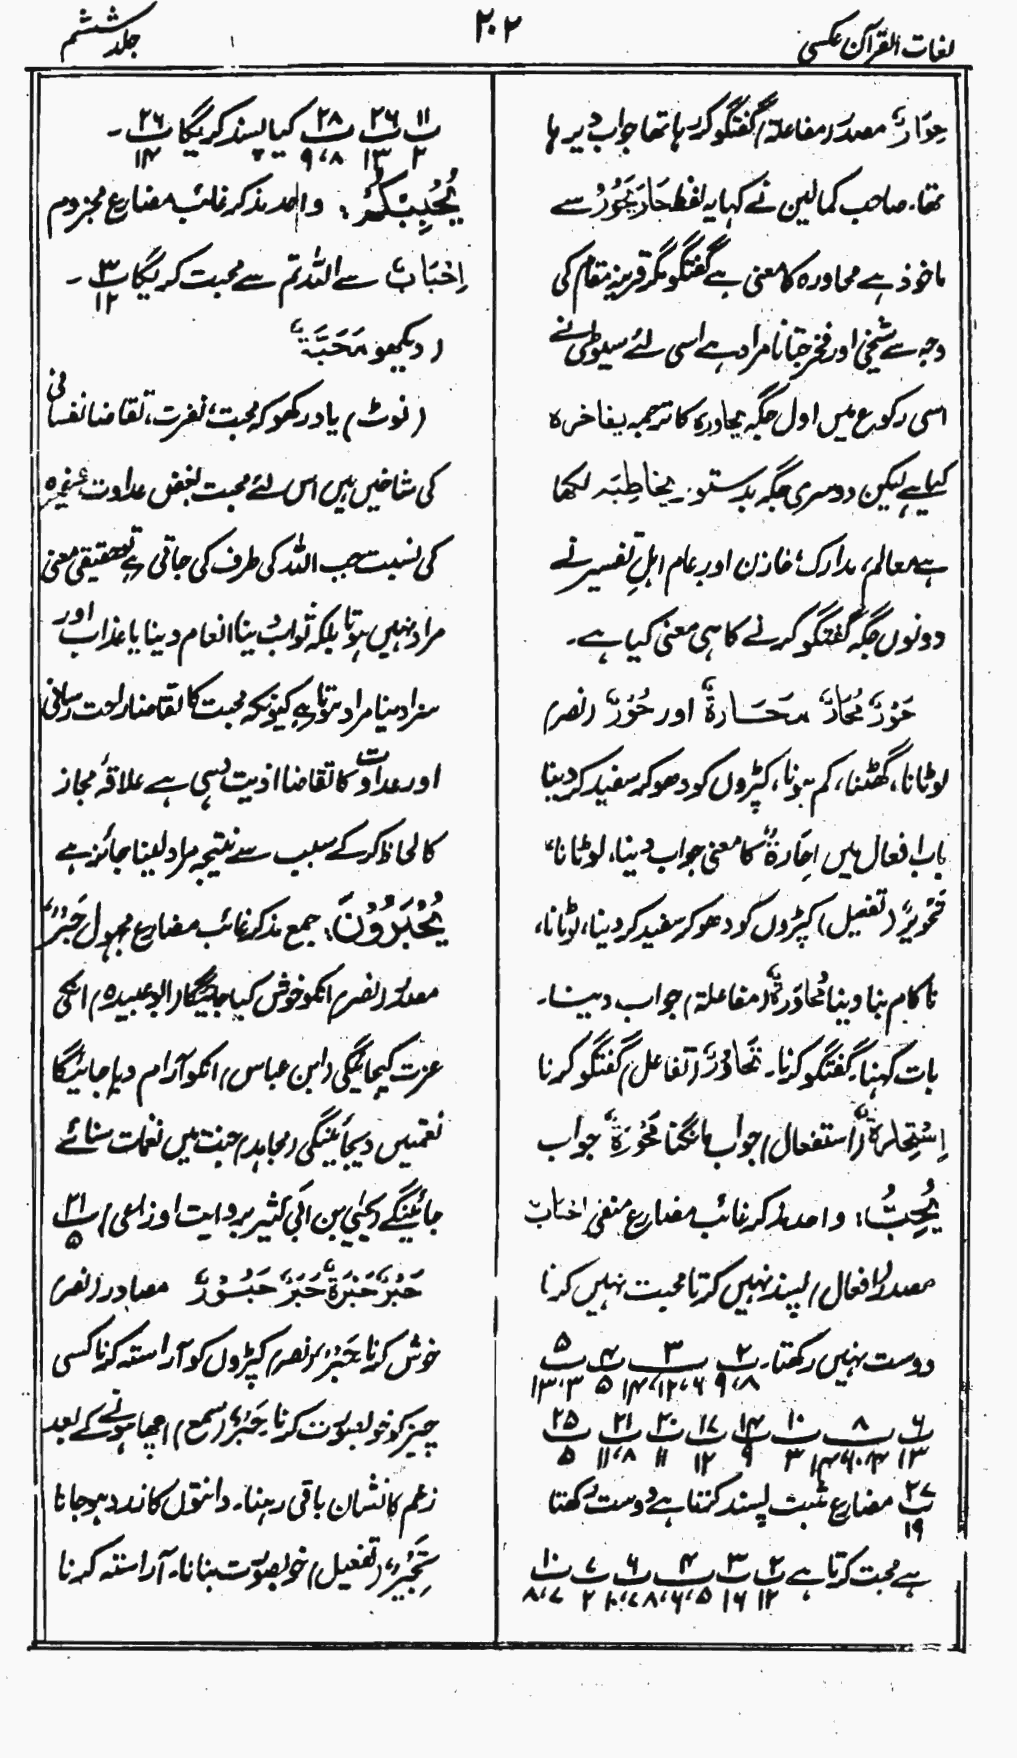 لغات القرآن عکسی
۲۰۲
جلد ششم
حِوَارٌ مصدر (مفاعلۃ) گفتگو کر رہا تھا جواب دیرہا
تھا۔ صاحب کمالین نے کہا یہ لفظ حَارَ یَحُوْرُ سے
ماخوذ ہے محاورہ کا معنی ہے گفتگو مگر قرینۂ مقام کی
وجہ سے شیخی اور فخر جتانا مراد ہے اسی لئے سیوطی نے
اسی رکوع میں اول جگہ یحاورہ کا ترجمہ یفاخرہ
کیا ہے لیکن دوسری جگہ بدستور یخاطبہ لکھا
ہے معالم، مدارک، خازن اور عام اہلِ تفسیر نے
دونوں جگہ گفتگو کرنے کا ہی معنی کیا ہے۔
حَوْرٌ مَحَارٌ مَحَارَۃٌ اور حُوْرٌ (نصر)
لوٹانا، گھٹنا، کم ہونا، کپڑوں کو دھو کر سفید کر دینا
باب افعال میں اِحَارَۃٌ کا معنی جواب دینا، لوٹانا،
تَحْوِیْرٌ (تفعیل) کپڑوں کو دھو کر سفید کر دینا، لوٹانا،
ناکام بنا دینا مُحَاوَرَۃٌ (مفاعلۃ) جواب دینا۔
بات کہنا، گفتگو کرنا۔ تَحَاوُرٌ (تفاعل) گفتگو کرنا
اِسْتِحَارَۃٌ (استفعال) جواب مانگنا مَحُوْرَۃٌ جواب
یُحِبُّ: واحد مذکر غائب مضارع منفی اِحْبَابٌ
مصدر (افعال) پسند نہیں کرتا محبت نہیں کرتا
دوست نہیں رکھتا۔ پ۲ پ۳ پ۴ پ۵
۸،۹ ۶،۱۲،۱۴ ۵ ۳،۱۳
پ۶ پ۸ پ۱۰ پ۱۴ پ۱۷ پ۲۰ پ۲۱ پ۲۵
۱۳ ۴،۱۰،۱۴ ۳ ۹ ۱۲ ۱۱ ۸،۱۱ ۵
پ۲۷ مضارع مثبت پسند کرتا ہے دوست رکھتا
۱۹
ہے محبت کرتا ہے پ۲ پ۳ پ۴ پ۶ پ۷ پ۱۰
۱۲ ۱۶ ۵،۶،۸ ۷،۱۰ ۲ ۷،۸
پ۱۱ پ۲۶ پ۲۸ کیا پسند کریگا پ۲۶ ۔
۲ ۱۳ ۸،۹ ۱۴
یُحْبِبْکُمُ: واحد مذکر غائب مضارع مجزوم
اِحْبَابٌ سے اللہ تم سے محبت کریگا پ۳ ۔
۱۲
(دیکھو مَحَبَّۃً)
(نوٹ) یاد رکھو کہ محبت، نفرت، تقاضا نفسانی
کی شاخیں ہیں اس لئے محبت بغض عداوت وغیرہ
کی نسبت جب اللہ کی طرف کی جاتی ہے تو حقیقی معنی
مراد نہیں ہوتا بلکہ ثواب دینا انعام دینا یا عذاب اور
سزا دینا مراد ہوتا ہے کیونکہ محبت کا تقاضا راحت رسانی
اور عداوت کا تقاضا اذیت دہی ہے علاقۂ مجاز
کا لحاظ کر کے سبب سے نتیجہ مراد لینا جائز ہے
یُحْبَرُوْنَ: جمع مذکر غائب مضارع مجہول حَبْرٌ
مصدر (نصر) انکو خوش کیا جائیگا (ابو عبیدہ) انکی
عزت کیجائیگی (ابن عباس) انکو آرام دیا جائیگا
نعمتیں دیجائینگی (مجاہد) جنت میں نغمات سنائے
جائینگے (یحیٰی بن ابی کثیر بروایت اوزاعی) پ۲۱
۵
حَبْرٌ حَبْرَۃٌ حَبَرٌ حُبُوْرٌ مصادر (نصر)
خوش کرنا حَبْرٌ (نصر) کپڑوں کو آراستہ کرنا کسی
چیز کو خوبصورت کرنا حَبَرٌ (سمع) اچھا ہونے کے بعد
زخم کا نشان باقی رہنا۔ دانتوں کا زرد ہو جانا
تَحْبِیْرٌ (تفعیل) خوبصورت بنانا۔ آراستہ کرنا